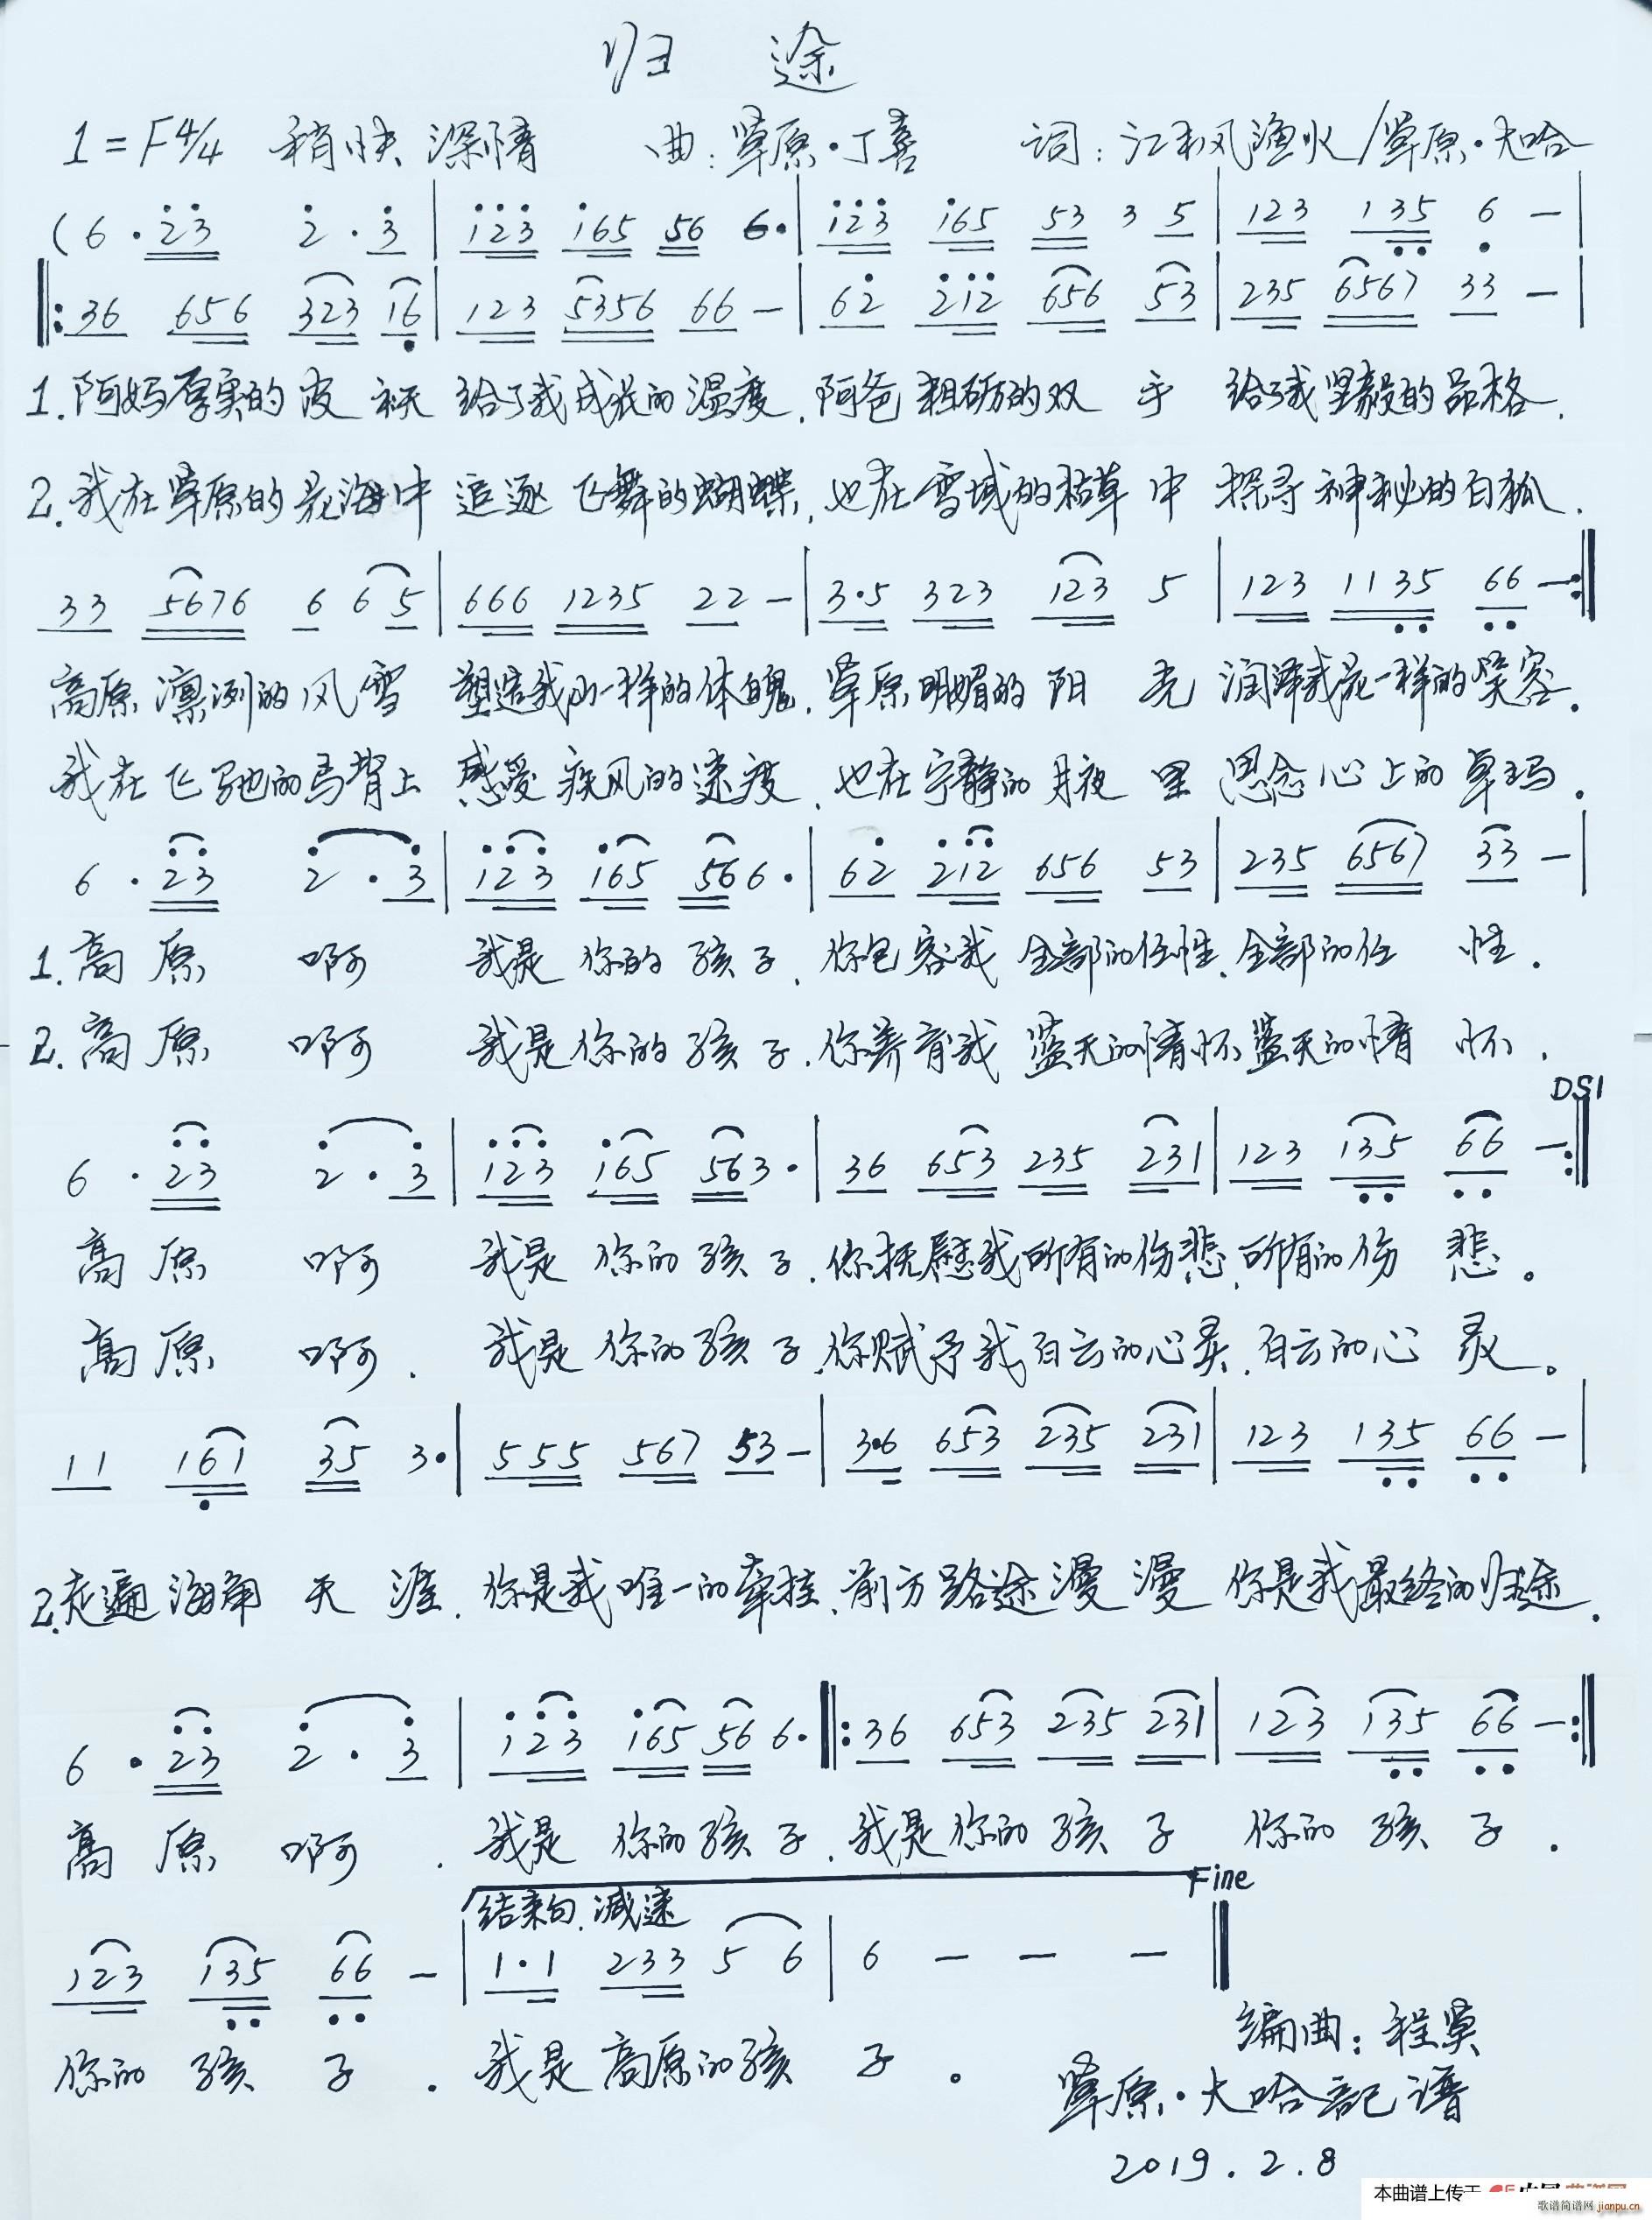 归 途
1=F4/4 稍快 深情 曲:草原·丁喜 词:江枫渔火/草原·大哈
(6·23 2·3|123 165 56 6·|123 165 53 3 5|123 135 6 —|
‖:36 656 323 16|123 5356 66 —|62 212 656 53|235 6567 33 —|
1.阿妈厚实的皮袄 给了我成长的温度,阿爸粗砺的双 手 给了我坚毅的品格.
2.我在草原的花海中 追逐飞舞的蝴蝶,也在雪域的枯草中 探寻神秘的白狐.
33 5676 6 6 5|666 1235 22 —|3·5 323 123 5|123 1135 66 —:‖
高原凛冽的风雪 塑造我山一样的体魄,草原明媚的阳 光 润泽我花一样的笑容.
我在飞驰的马背上 感受疾风的速度,也在宁静的月夜里 思念心上的卓玛.
6·23 2·3|123 165 56 6·|62 212 656 53|235 6567 33 —|
1.高原 啊 我是你的孩子,你包容我 全部的任性,全部的任 性.
2.高原 啊 我是你的孩子,你养育我 蓝天的情怀,蓝天的情 怀.
DS1
6·23 2·3|123 165 56 3·|36 653 235 231|123 135 66 —:‖
高原 啊 我是你的孩子,你抚慰我所有的伤悲,所有的伤 悲。
高原 啊. 我是你的孩子,你赋予我白云的心灵,白云的心 灵。
11 161 35 3·|555 567 53 —|3·6 653 235 231|123 135 66 —|
2.走遍海角 天 涯,你是我唯一的牵挂,前方路途漫 漫 你是我最终的归途.
6·23 2·3|123 165 56 6·‖:36 653 235 231|123 135 66 —:‖
高原 啊. 我是你的孩子,我是你的孩 子 你的孩子.
结束句.减速 Fine
123 135 66 —|1·1 233 5 6|6 — — —‖
你的 孩 子. 我是高原的孩 子。
编曲:程昊
草原·大哈記谱
2019.2.8
本曲谱上传于
歌谱简谱网 jianpu.cn